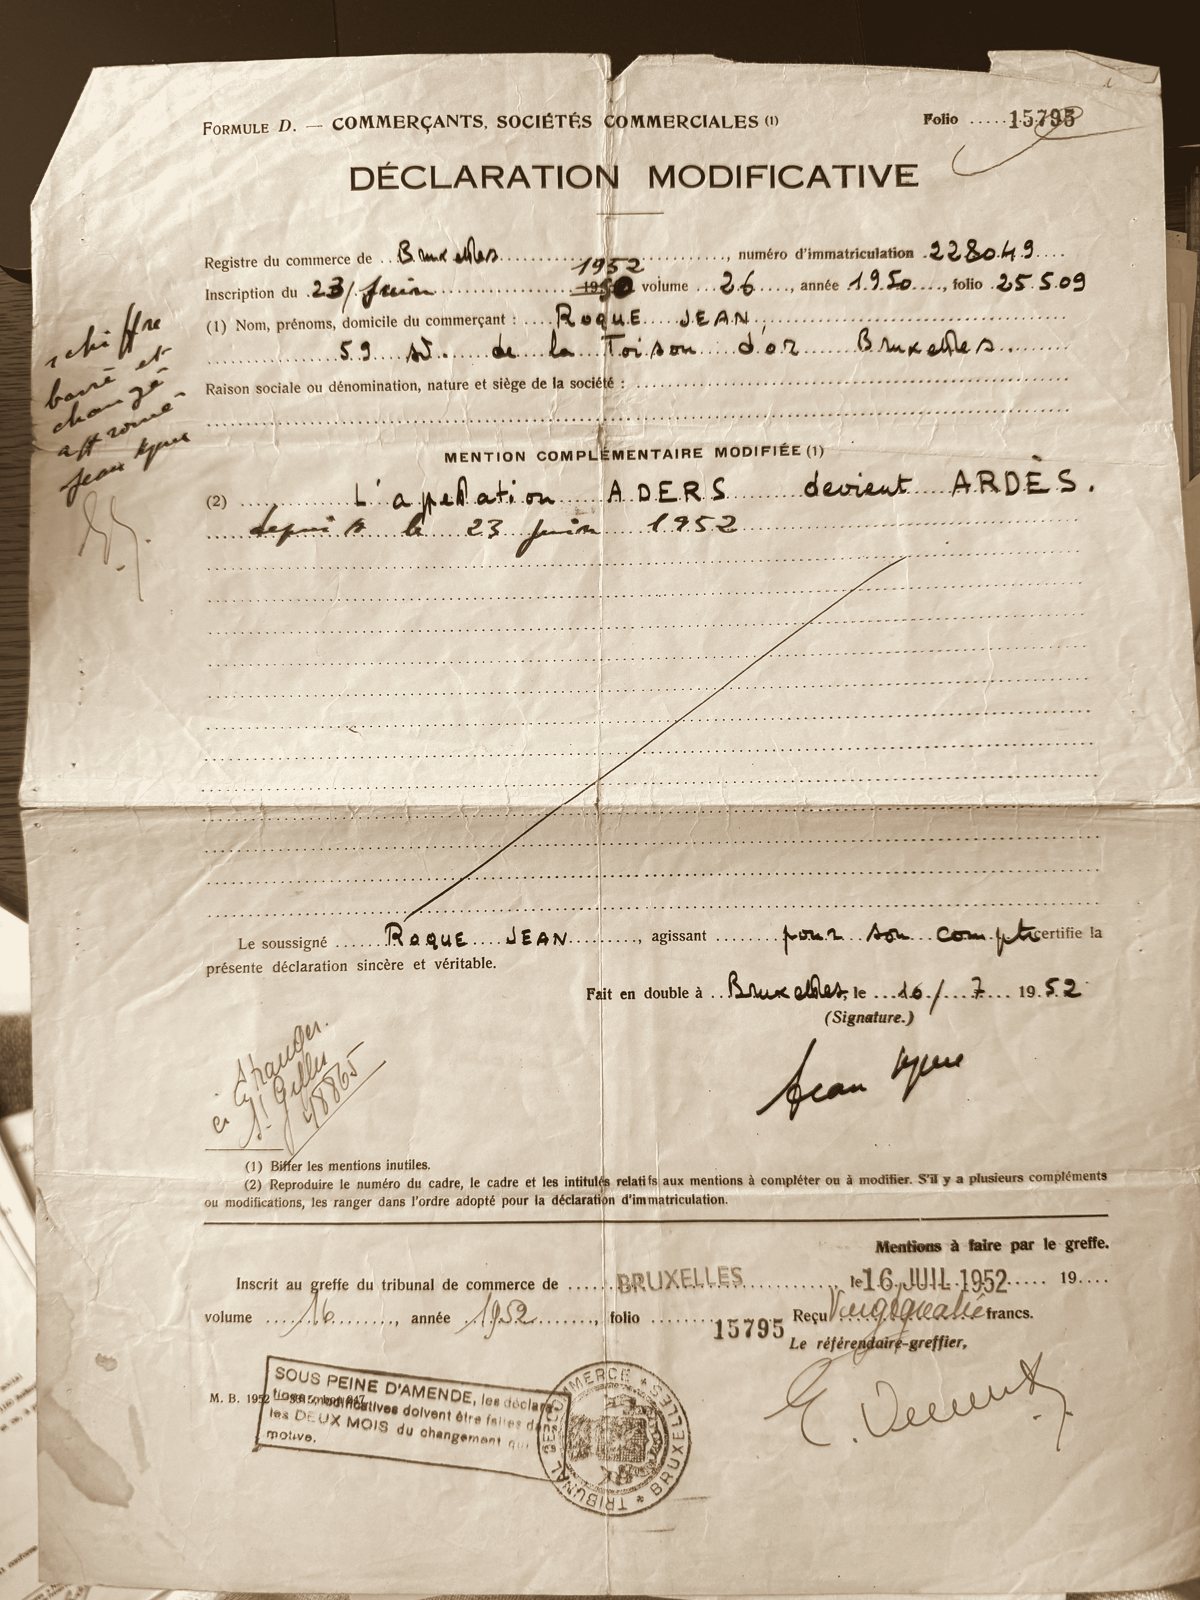 FORMULE D. — COMMERÇANTS, SOCIÉTÉS COMMERCIALES (1) Folio ..... 15795
DÉCLARATION MODIFICATIVE
Registre du commerce de Bruxelles, numéro d'immatriculation 228049
1952
Inscription du 23/ juin volume 26, année 1950, folio 25.509
(1) Nom, prénoms, domicile du commerçant : ROQUE JEAN,
59 de la Toison d'or Bruxelles.
Raison sociale ou dénomination, nature et siège de la société :
chiffre
barré et
changé
approuvé
Jean
MENTION COMPLÉMENTAIRE MODIFIÉE (1)
(2) L'apellation ADERS devient ARDÈS.
depuis le 23 juin 1952
Le soussigné ROQUE JEAN, agissant pour son compte certifie la
présente déclaration sincère et véritable.
Fait en double à Bruxelles, le 16/ 7 1952
(Signature.)
Jean
St Gilles
48865
(1) Biffer les mentions inutiles.
(2) Reproduire le numéro du cadre, le cadre et les intitulés relatifs aux mentions à compléter ou à modifier. S'il y a plusieurs compléments
ou modifications, les ranger dans l'ordre adopté pour la déclaration d'immatriculation.
Mentions à faire par le greffe.
Inscrit au greffe du tribunal de commerce de BRUXELLES, le 16 JUIL 1952 19....
volume 16, année 1952, folio 15795 Reçu Vingtquatre francs.
Le référendaire-greffier,
SOUS PEINE D'AMENDE, les déclara-
tions modificatives doivent être faites dans
les DEUX MOIS du changement qui
motive.
M. B. 1952
TRIBUNAL DE COMMERCE * BRUXELLES *